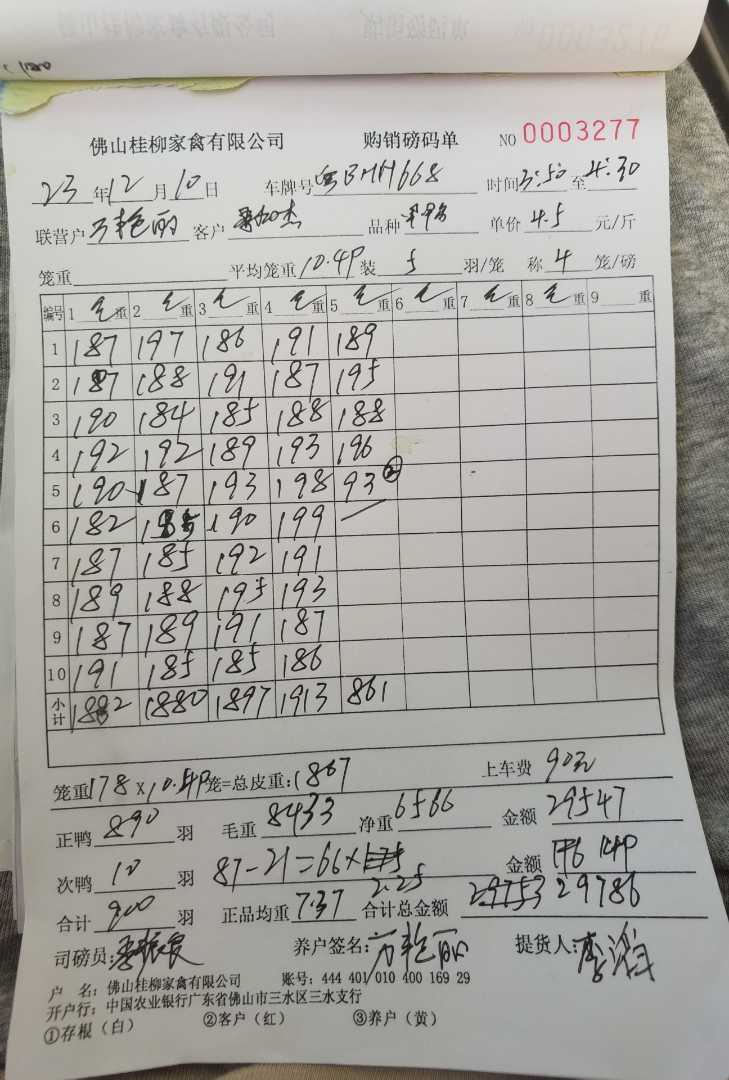 佛山桂柳家禽有限公司 购销磅码单 NO 0003277
23 年 12 月 10 日 车牌号 BMH668 时间 3:50 至 4:30
联营户 万艳丽 客户 品种 单价 4.5 元/斤
笼重 平均笼重 10.49 装 5 羽/笼 称 4 笼/磅
编号 1 毛 重 2 毛 重 3 毛 重 4 毛 重 5 毛 重 6 毛 重 7 毛 重 8 毛 重 9 重
1 187 197 186 191 189
2 187 188 191 187 195
3 190 184 185 188 188
4 192 192 189 193 196
5 190 187 193 198 93 ②
6 182 185 190 199
7 187 185 192 191
8 189 188 195 193
9 187 189 191 187
10 191 185 185 186
小计 1882 1880 1897 1913 861
笼重 178 × 10.49 笼=总皮重: 1867 上车费 90元
正鸭 890 羽 毛重 8433 净重 6566 金额 29547
次鸭 10 羽 87-21=66× 2.25 金额 149
合计 900 羽 正品均重 7.37 合计总金额 29753 29786
司磅员: 养户签名: 万艳丽 提货人:
户 名: 佛山桂柳家禽有限公司 账号: 444 401 010 400 169 29
开户行: 中国农业银行广东省佛山市三水区三水支行
①存根（白） ②客户（红） ③养户（黄）